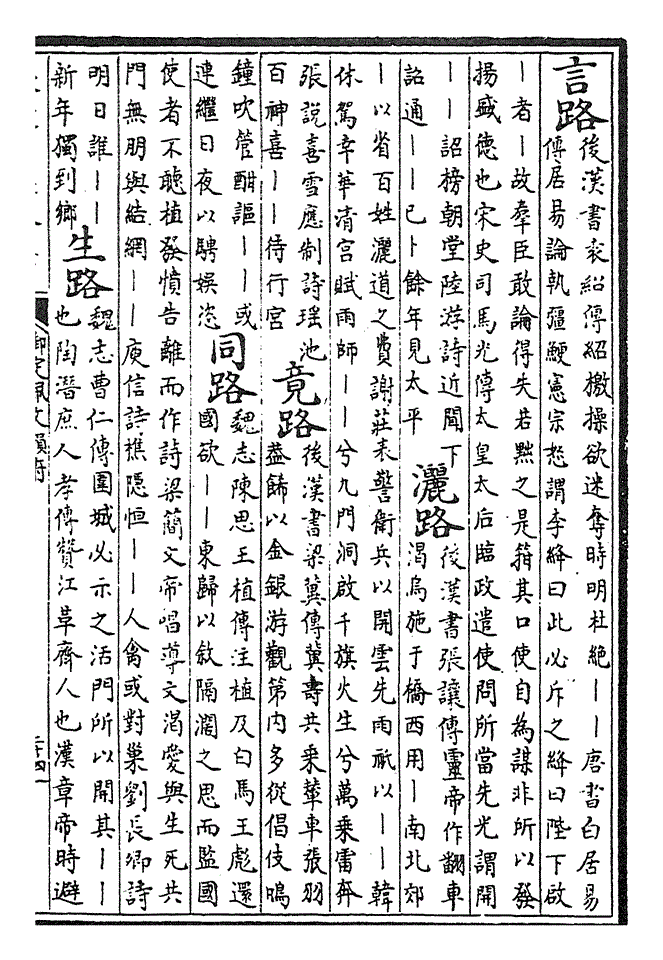 言路
後漢書袁紹傳紹檄操欲迷奪時明杜絶丨丨唐書白居易
傳居易論執彊鯁憲宗怒謂李絳曰此必斥之絳曰陛下啟
丨者丨故羣臣敢論得失若黜之是箝其口使自為謀非所以發
揚盛德也宋史司馬光傳太皇太后臨政遣使問所當先光謂開
丨丨詔榜朝堂陸游詩近聞下
詔通丨丨已卜餘年見太平
灑路
後漢書張讓傳靈帝作翻車
渴烏施于橋西用丨南北郊
丨以省百姓灑道之費謝莊表警衛兵以開雲先雨祇以丨丨韓
休駕幸華清宮賦雨師丨丨兮九門洞啟千旗火生兮萬乘雷奔
張說喜雪應制詩瑶池
百神喜丨丨待行宮
竟路
後漢書梁冀傳冀壽共乘輦車張羽
葢飾以金銀游觀第內多從倡伎鳴
鐘吹管酣謳丨丨或
連繼日夜以騁娛恣
同路
魏志陳思王植傳注植及白馬王彪還
國欲丨丨東歸以敘隔濶之思而監國
使者不聽植發憤告離而作詩梁簡文帝唱導文渴愛與生死共
門無朋與結網丨丨庾信詩樵隱恒丨丨人禽或對巢劉長卿詩
明日誰丨丨
新年獨到鄉
生路
魏志曹仁傳圍城必示之活門所以開其丨丨
也陶潛庶人孝傳贊江革齊人也漢章帝時避
御定佩文韻府